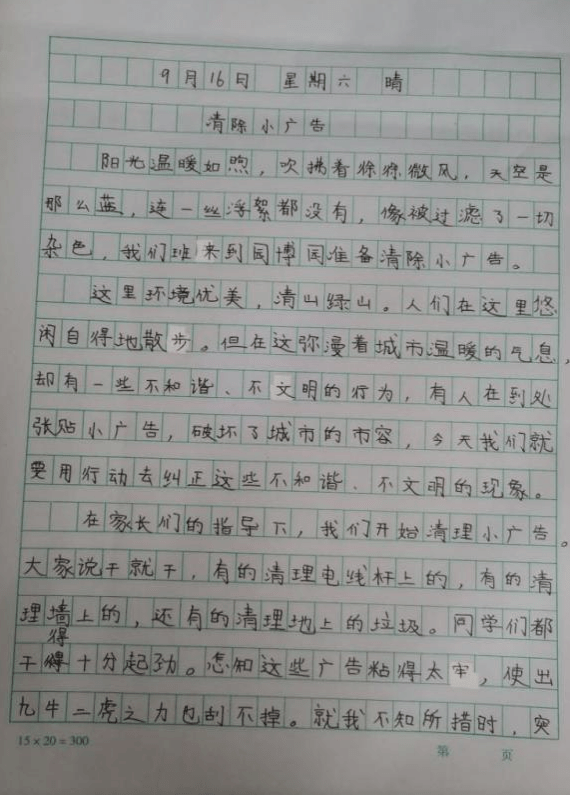 9月16日 星期六 晴
清除小广告
阳光温暖如煦，吹拂着徐徐微风，天空是
那么蓝，连一丝浮絮都没有，像被过滤了一切
杂色，我们班来到园博园准备清除小广告。
这里环境优美，清山绿山。人们在这里悠
闲自得地散步。但在这弥漫着城市温暖的气息，
却有一些不和谐、不文明的行为，有人在到处
张贴小广告，破坏了城市的市容，今天我们就
要用行动去纠正这些不和谐、不文明的现象。
在家长们的指导下，我们开始清理小广告。
大家说干就干，有的清理电线杆上的，有的清
理墙上的，还有的清理地上的垃圾。同学们都
干得十分起劲。怎知这些广告粘得太牢，使出
九牛二虎之力也刮不掉。就我不知所措时，突
15×20=300
第 页